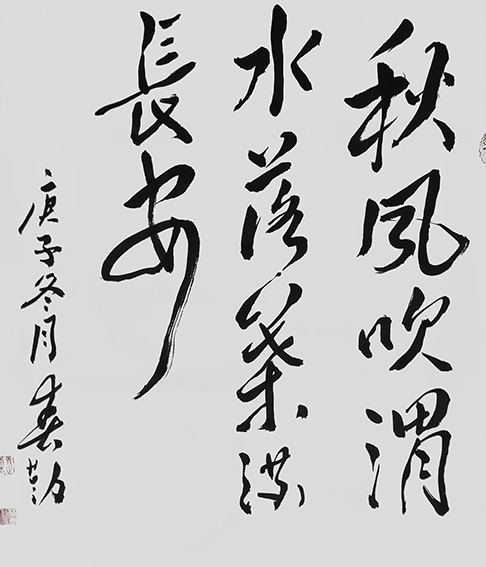 秋風吹渭
水落葉滿
長安
庚子冬月春